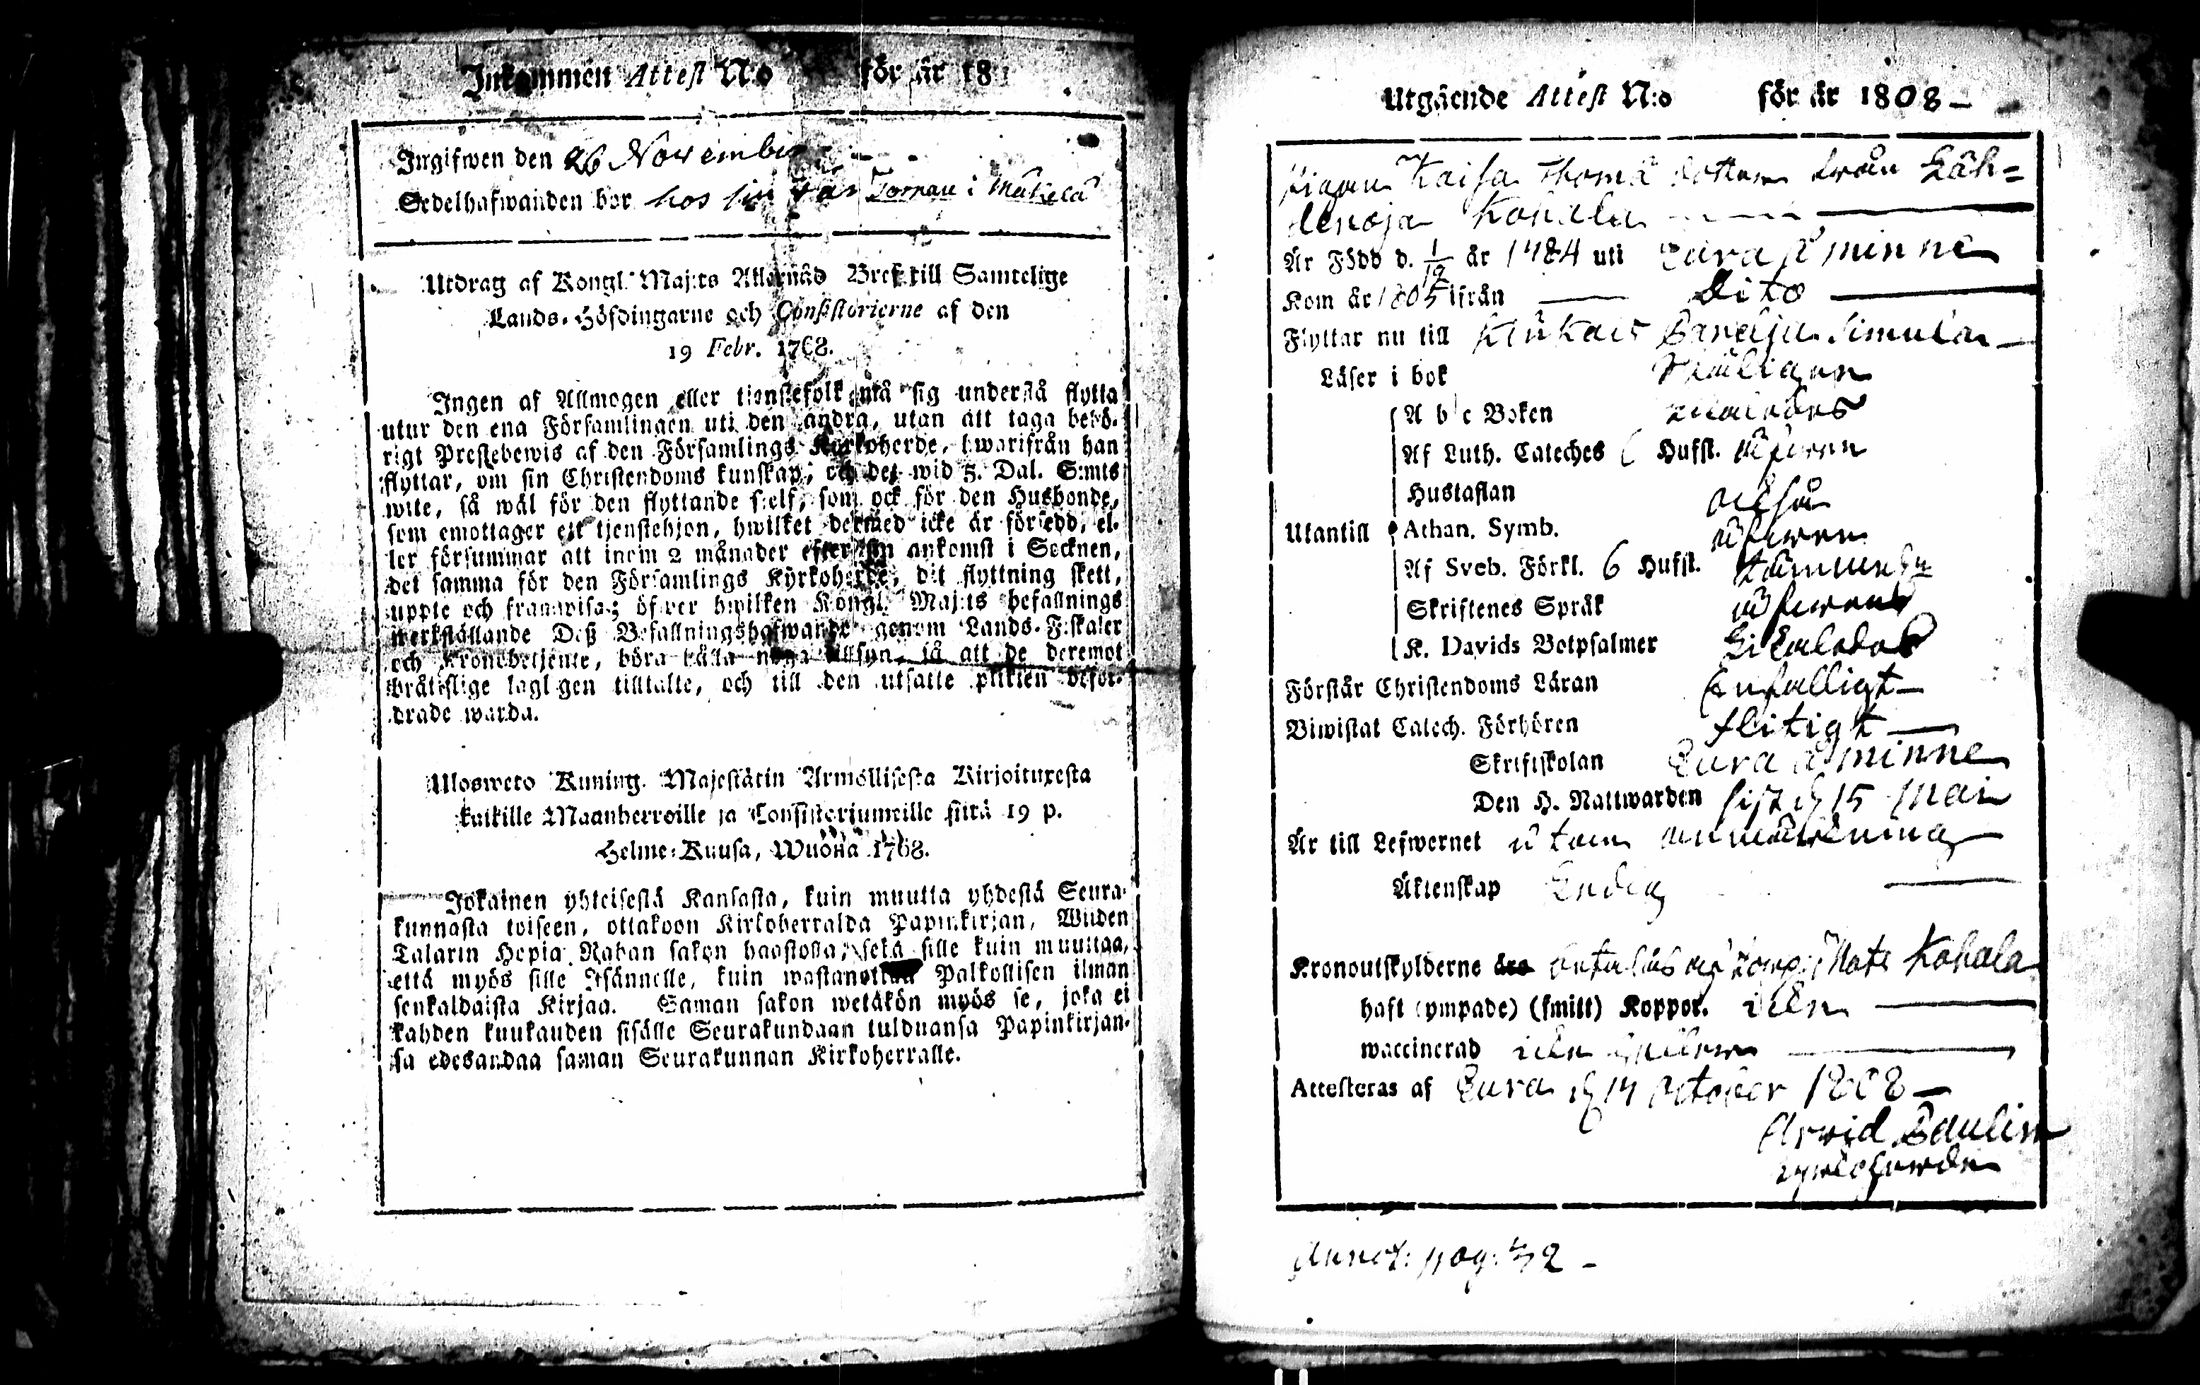 Inkommen Attest N:o för år 18
Ingifwen den 26 November
Sedelhafwanden bor hos sin i Mäkelä
Utdrag af Kongl. Maj:ts Allernåd Bref till Samtelige
Lands-Höfdingarne och Consistorierne af den
19 Febr. 1768.
Ingen af Allmogen eller tienstefolk må sig understå flytta
utur den ena Församlingen uti den andra, utan att taga behö-
rigt Prestebewis af den Församlings Kyrkoherde, hwarifrån han
flyttar, om sin Christendoms kunskap; och det wid 5. Dal. S:mts
wite, så wäl för den flyttande sielf, som ock för den Husbonde,
som emottager ett tjenstehjon, hwilket dermed icke är försedd, el-
ler försummar att inom 2 månader efter sin ankomst i Socknen,
det samma för den Församlings Kyrkoherde, dit flyttning skett,
uppte och framwisa; öfwer hwilken Kongl. Maj:ts befallnings
werkställande Deß Befallningshafwande genom Lands-Fiskaler
och Kronobetjente, böra hålla noga tillsyn, så att de deremot
bråtslige lagligen tilltalte, och till den utsatte plikten befor-
drade warda.
Ulosweto Kuning. Majestätin Armollisesta Kirjoituxesta
kaikille Maanherroille ja Consistoriumeille siitä 19 p.
Helme-Kuusa, Wuonna 1768.
Jokainen yhteisestä Kansasta, kuin muutta yhdestä Seura-
kunnasta toiseen, ottakoon Kirkoherralda Papinkirjan, Wiiden
Talarin Hopia Rahan sakon haastolla, sekä sille kuin muuttaa,
että myös sille Isännelle, kuin wastanottaa Palkollisen ilman
senkaldaista Kirjaa. Saman sakon wetäkön myös se, joka ei
kahden kuukauden sisälle Seurakundaan tulduansa Papinkirjan-
sa edesandaa saman Seurakunnan Kirkoherralle.
Utgående Attest N:o för år 1808 -
Pigan Kaisa Thomä dotter från Läh=
denoja Kohala
Är Född d. 1/12 år 1784 uti Eura Åminne
Kom år 1805 ifrån Dito
Flyttar nu till Kiukais Paneljа Simula
Läser i bok
A b c Boken
Af Luth. Cateches 6 Hufst. äfwen
Hustaflan också
Utantill Athan. Symb. äfwen
Af Sveb. Förkl. 6 Hufst.
Skriftenes Språk
K. Davids Botpsalmer Likaledes
Förstår Christendoms Läran Enfalligt
Biwistat Catech. Förhören flitigt
Skriftskolan Eura Åminne
Den H. Nattwarden sist d 15 Maii
Är till Lefwernet utan anmärkning
Äktenskap Ledig
Kronoutskylderne betalas af Komp: Mats Kohala
haft (ympade) (smitt) Koppor.
waccinerad icke heller
Attesteras af Eura d 14 October 1808 -
Arvid Paulin
Kyrkoherde
Annot: pag: 32 -